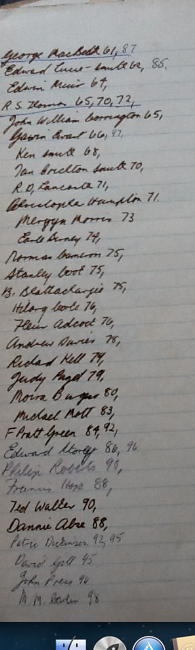 George MacBeth 61, 87
Edward Lucie-Smith 62, 85,
Edwin Muir 64,
R.S. Thomas 65, 70, 72,
John William Corrington 65,
Gavin Ewart 66, 87,
Ken Smith 68,
Ian Crichton Smith 70,
R.D. Lancaster 71,
Christopher Hampton 71.
Mervyn Morris 73
74,
Norman Cameron 75,
Stanley Cook 75,
B. Bhattacharjee 75,
Hilary 76,
Fleur Adcock 76,
Andrew Davies 78,
Richard Kell 79,
Judy 79,
Moira Burgess 80,
Michael Mott 83,
F Pratt Green 89, 92,
Edward Storey 86, 96
Philip Roberts 90,
Francis Hope 88,
Ted Walker 90,
Dannie Abse 88,
Patric Dickinson 92, 95
David Gill 95
John Press 96
M.M. 98